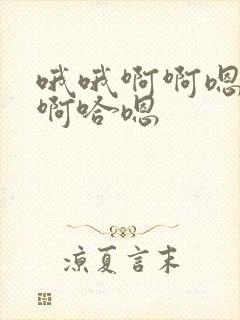 哦哦啊啊嗯
啊哈嗯
凉夏言末